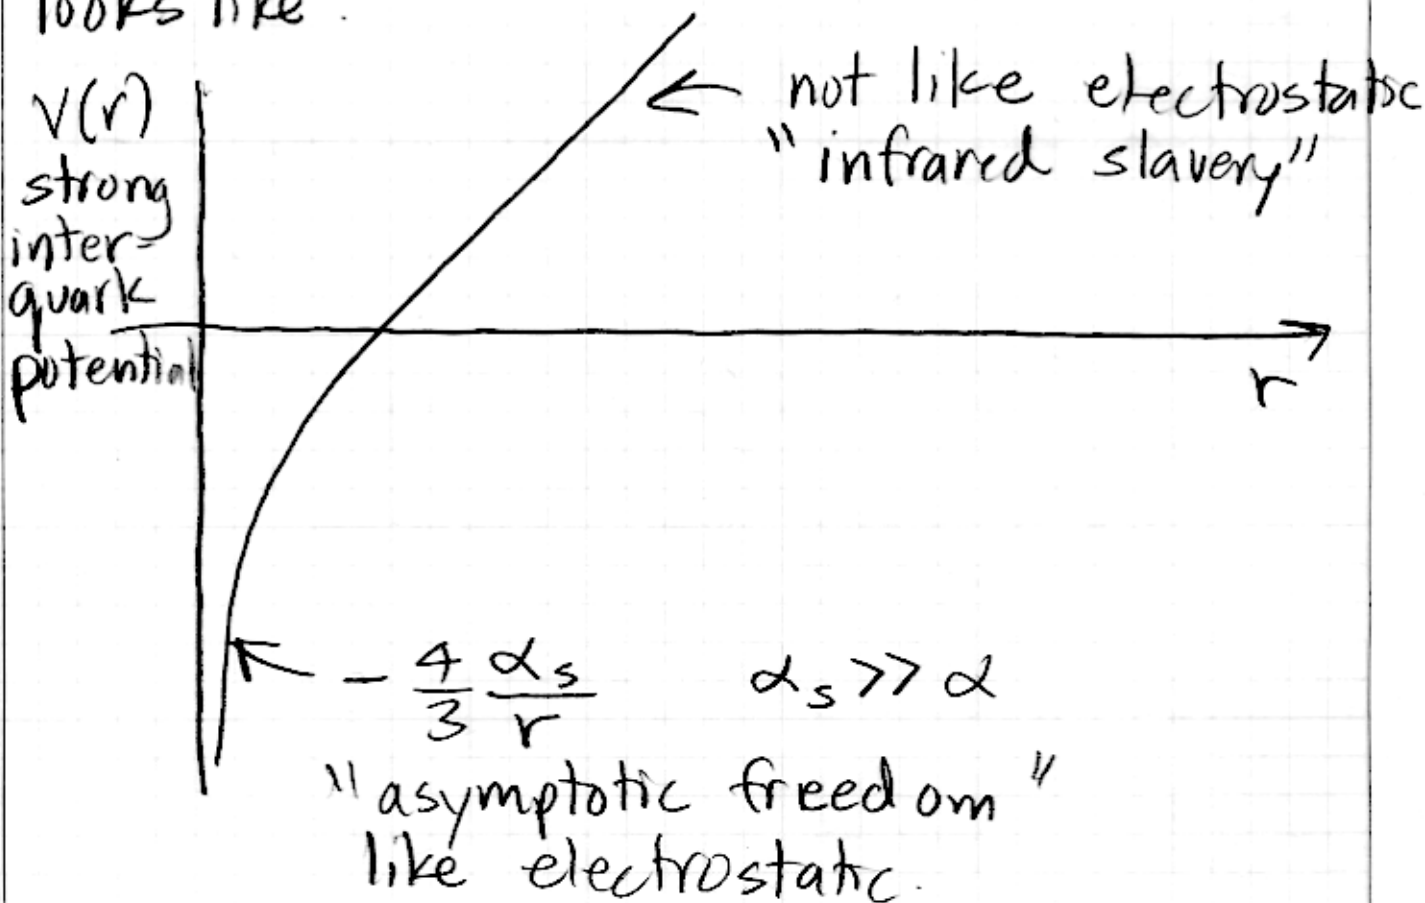 looks like.
V(r)
strong
inter-
quark
potential
not like electrostatic
"infrared slavery"
r
- 4/3 αs/r αs >> α
"asymptotic freedom"
like electrostatic.